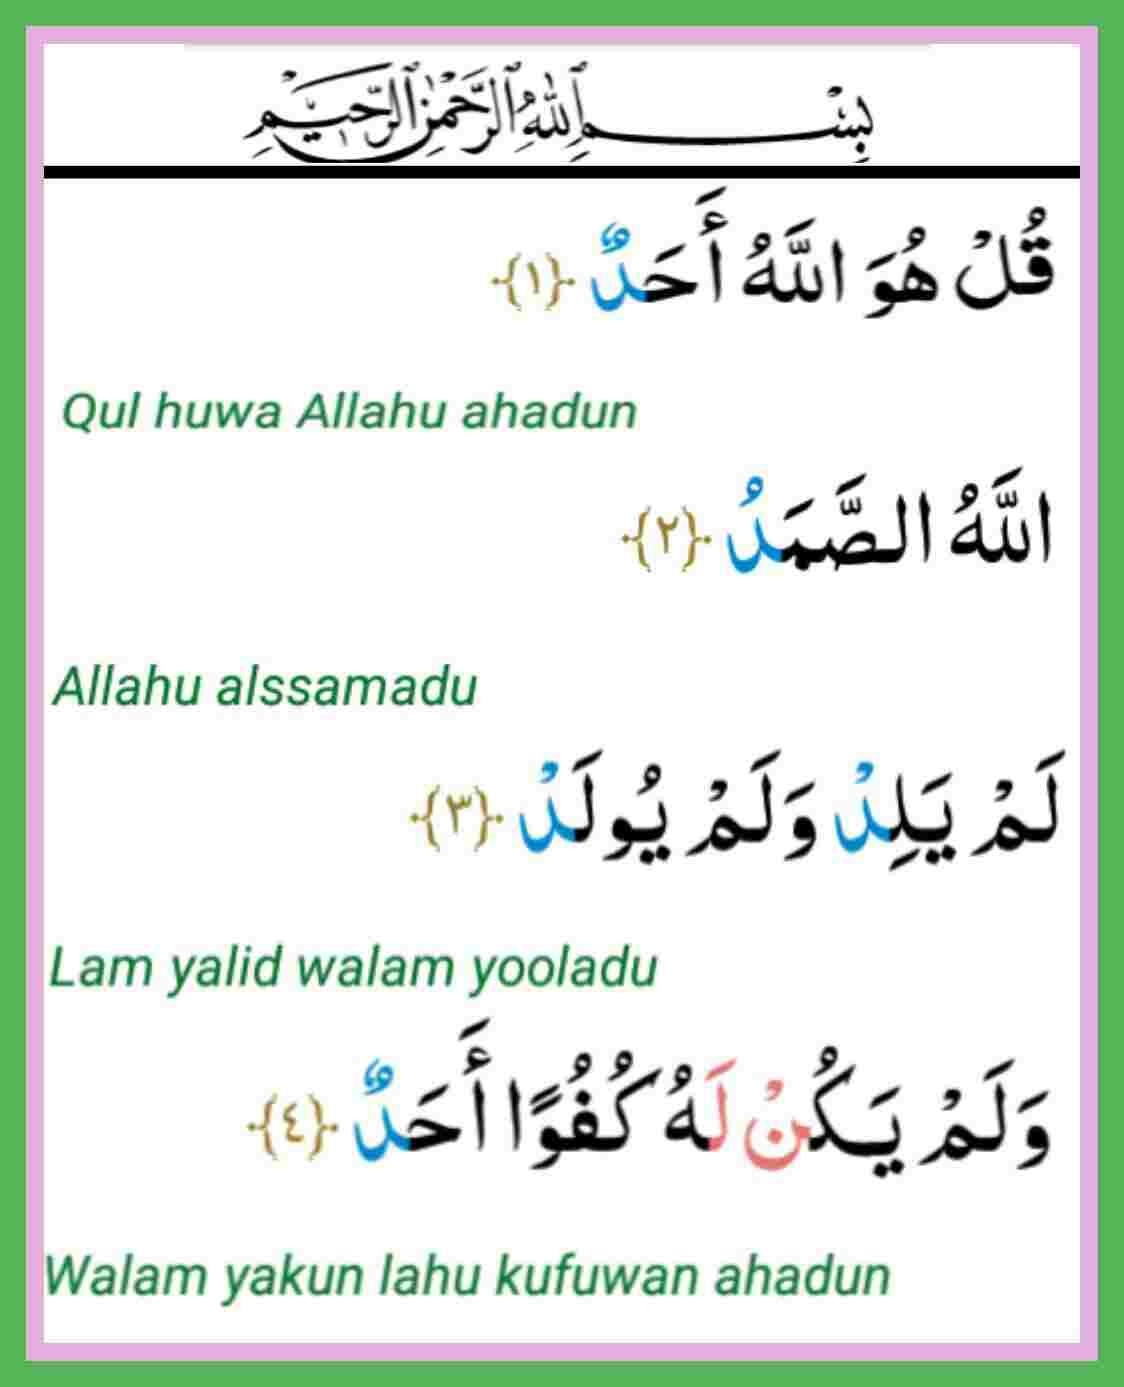 بِسْمِ ٱللَّهِ ٱلرَّحْمَٰنِ ٱلرَّحِيمِ
قُلْ هُوَ اللَّهُ أَحَدٌ ﴿١﴾
Qul huwa Allahu ahadun
اللَّهُ الصَّمَدُ ﴿٢﴾
Allahu alssamadu
لَمْ يَلِدْ وَلَمْ يُولَدْ ﴿٣﴾
Lam yalid walam yooladu
وَلَمْ يَكُنْ لَهُ كُفُوًا أَحَدٌ ﴿٤﴾
Walam yakun lahu kufuwan ahadun